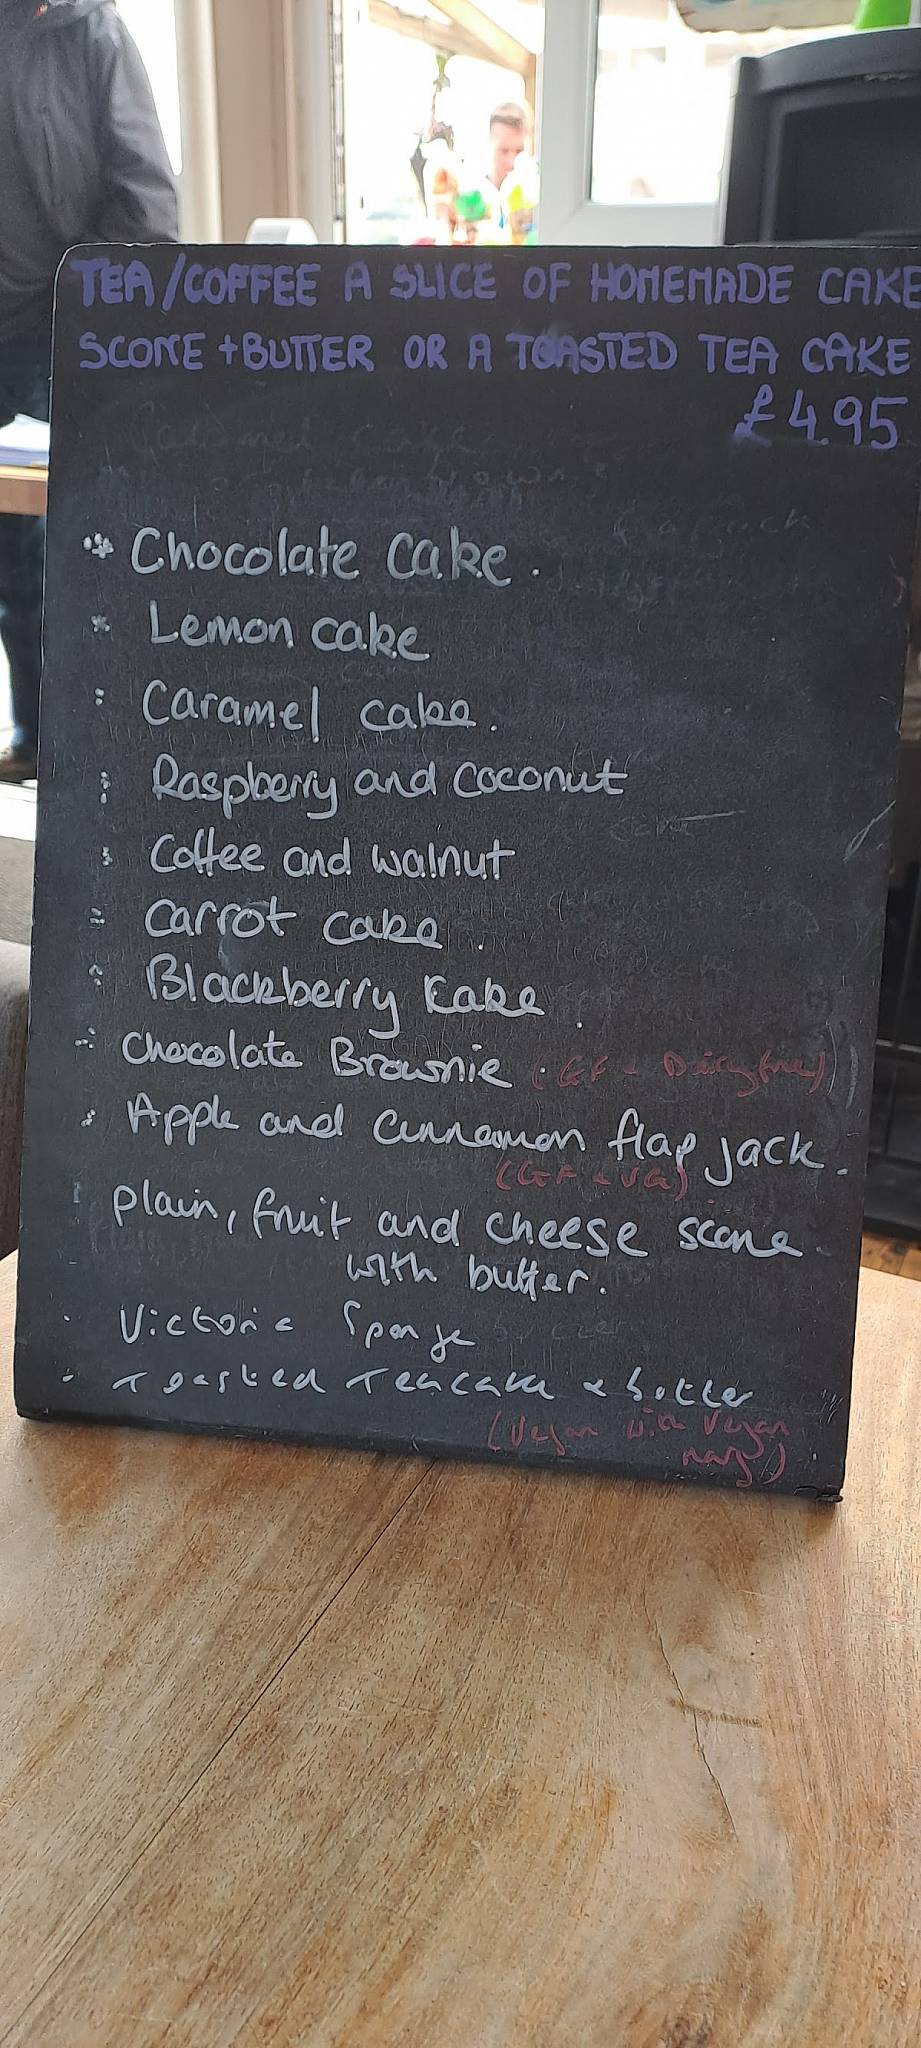 TEA/COFFEE A SLICE OF HOMEMADE CAKE
SCONE + BUTTER OR A TOASTED TEA CAKE
£4.95
* Chocolate cake.
* Lemon cake
Caramel cake.
Raspberry and coconut
Coffee and walnut
Carrot cake.
Blackberry Kake.
Chocolate Brownie. (GF + Dairy free)
Apple and cinnamon flap jack.
(GF + VG)
Plain, fruit and cheese scone.
with butter.
Victoria Sponge
Toasted Teacake + butter
(Vegan with Vegan
marg)